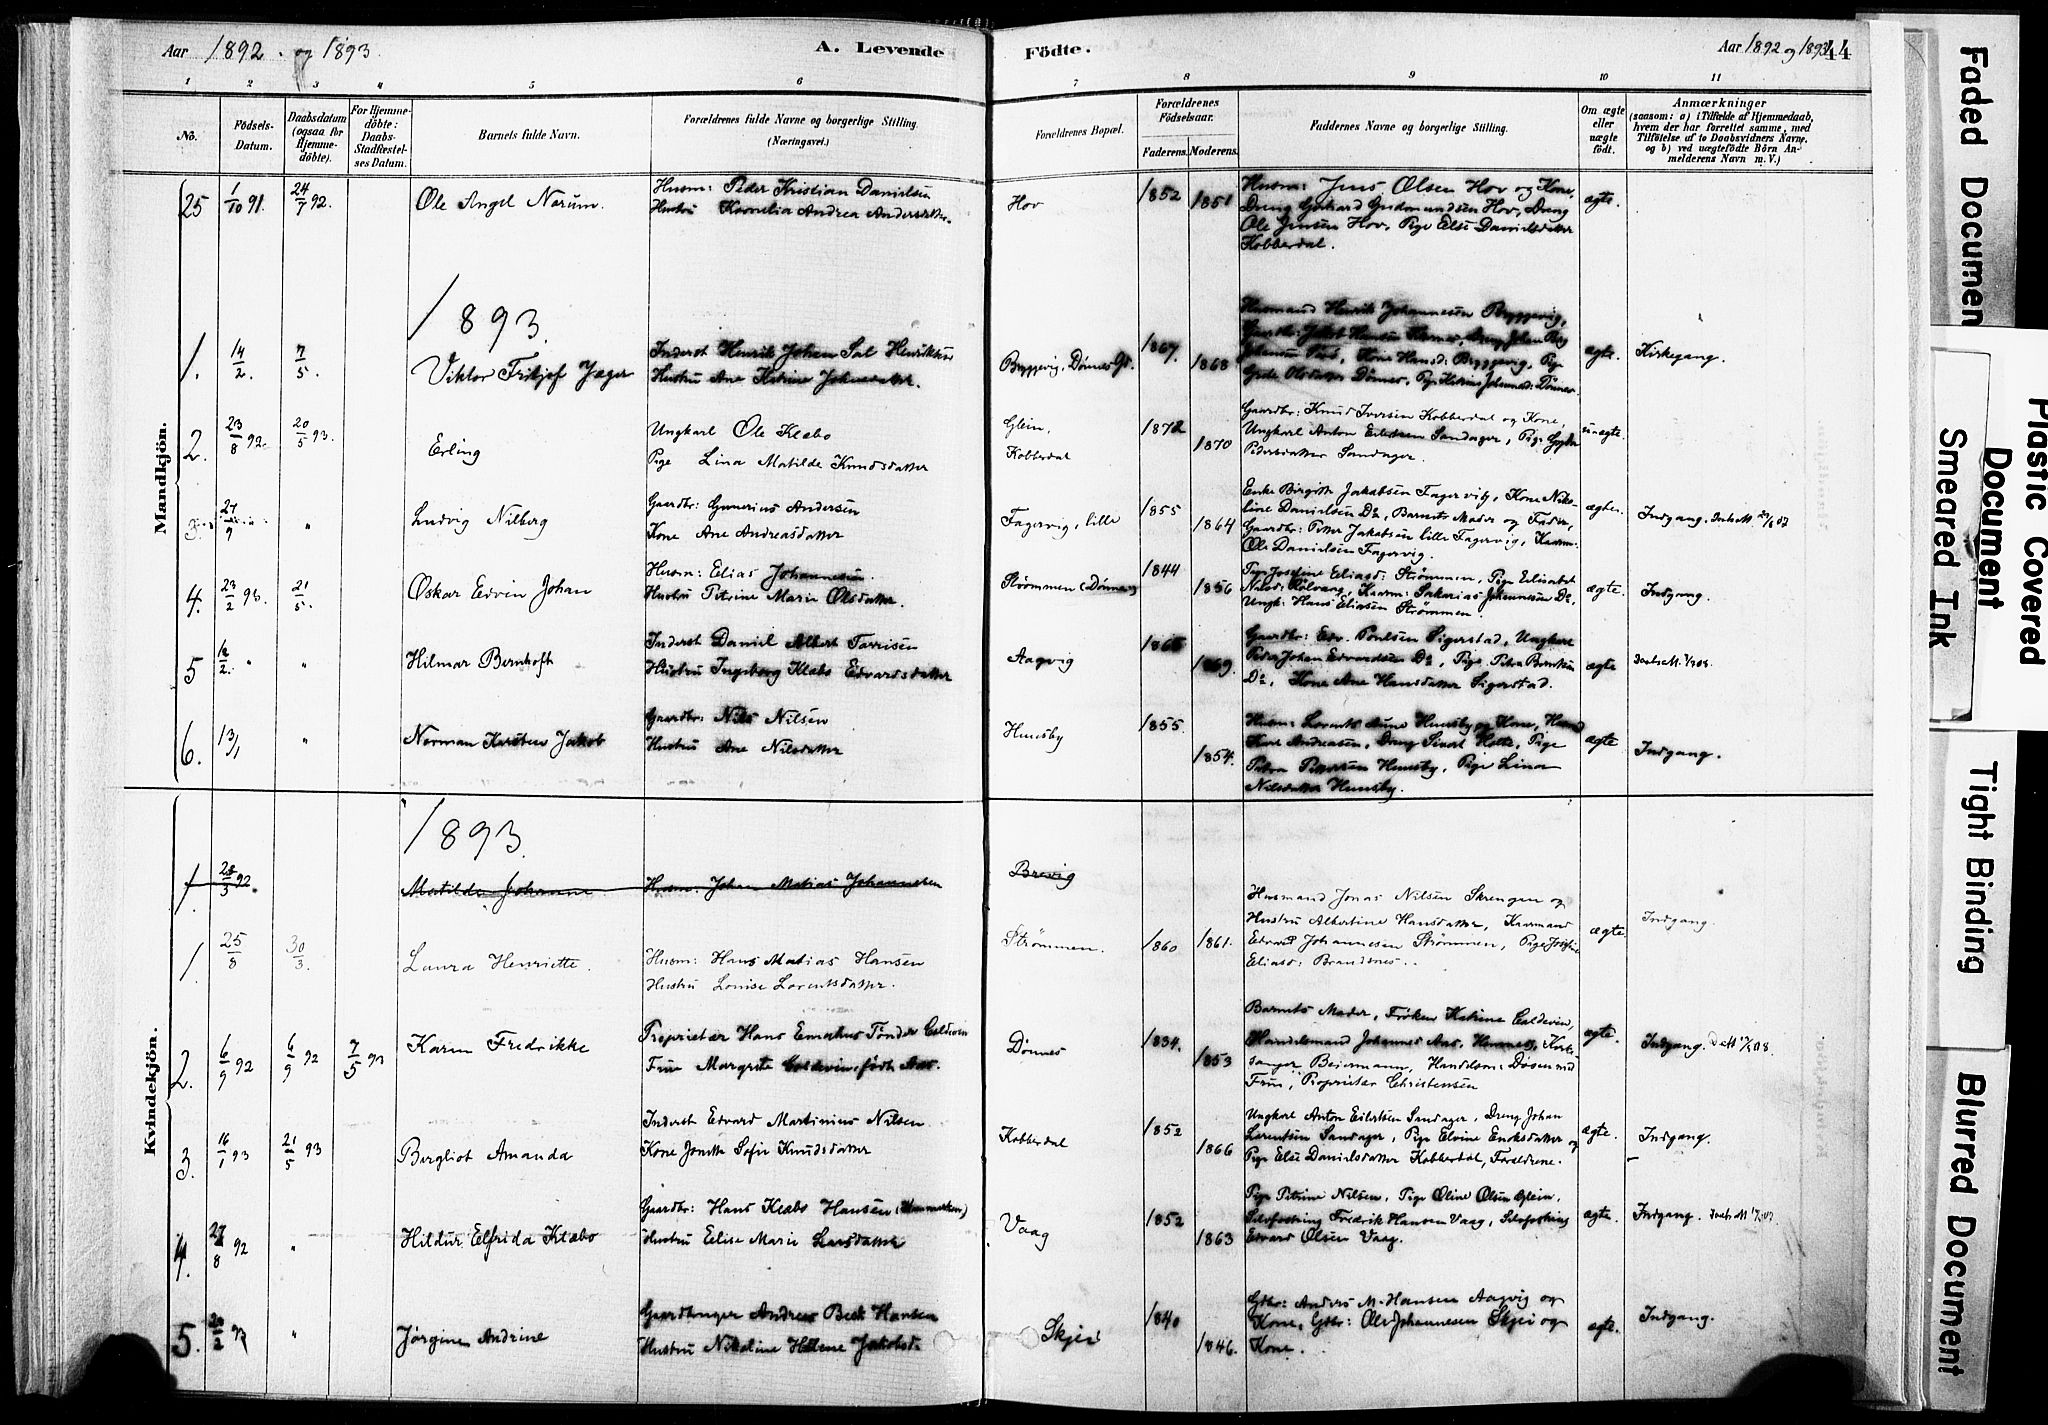 Aar 1892. og 1893.
A. Levende
Födte.
Aar 1892 og 1893
44
1 2 3 4 5 6 7 8 9 10 11
No.
Födsels-
Datum.
Daabsdatum
(ogsaa for
Hjemme-
döbte).
For Hjemme-
döbte:
Daabs-
Stadfæstel-
ses Datum.
Barnets fulde Navn.
Forældrenes fulde Navne og borgerlige Stilling.
(Næringsvei.)
Forældrenes Bopæl.
Forældrenes
Födselsaar.
Faderens.
Moderens.
Faddernes Navne og borgerlige Stilling.
Om ægte
eller
uægte
födt.
Anmærkninger
(saasom: a) i Tilfælde af Hjemmedaab,
hvem der har forrettet samme, med
Tilföielse af to Daabsvidners Navne,
og b) ved uægtefödte Börn An-
melderens Navn m. V.)
Mandkjön.
25 1/10 91. 24/7 92. Ole Angel Narum.
Husm: Peder Kristian Danielsen
Hustru Kornelia Andrea Andersdatter.
Hov
1852
1851
Husm: Jens Olsen Hov og Kone,
Dreng Gerhard Gudmundsen Hov, Dreng
Ole Jensen Hov, Pige Else Danielsdatter
Kobberdal.
ægte.
1893.
1. 14/2. 7/5. Viktor Fritjof Jæger
Inderst Henrik Johan Sal Henriksen
Hustru Ane Katrine Johnsdatter.
Bryggevig, Dønnes Gd.
1867.
1868
Husmand Henrik Johannesen Bryggevig,
ægte.
Kirkegang.
2. 23/8 92. 20/5 93. Erling
Ungkarl Ole Klæbo
Pige Lina Matilde Knudsdatter
Glein,
Kobberdal
1872
1870
Gaardbr: Knud Iversen Kobberdal og Kone,
Ungkarl Anton Eilertsen Sandager, Pige
Pedersdatter Sandager.
uægte.
3. 27/9 " Ludvig Nilberg
Gaardbr: Gunerius Andersen
Kone Ane Andreasdatter
Fagervig, lille
1855
1864
Enke Birgitte Jakobsen Fagervig, Kone Niko-
line Danielsen Do, Barnets Moder og Fader,
Gaardbr: Petter Jakobsen lille Fagervig, Kaarm:
Ole Danielsen Fagervig.
ægte.
Indgang.
4. 23/2 93. 21/5. Oskar Edvin Johan
Husm: Elias Johannesen.
Hustru Petrine Marie Olsdatter.
Strømmen (Dønnes)
1844
1856
Pige Josefine Eliasd: Strømmen, Pige Elisabet
Nilsd: Rölvaag, Kaarm: Sakarias Johannesen Do,
Ungk: Hans Eliasen Strømmen.
ægte.
Indgang.
5 " " Hilmar Bernhoft
Inderst Daniel Albert Torrisen
Hustru Ingeborg Klæbo Edvardsdatter
Aagvig
1869.
Gaardbr: Edv. Poulsen Sigerstad, Ungkarl
Peder Johan Edvardsen Do, Pige Petra Berntsen
Do, Kone Ane Hansdatter Sigerstad.
ægte
6. 13/1 " Norman Karsten Jakob
Gaardbr: Nils Nilsen
Hustru Ane Nilsdatter
Hunsby
1855.
1854.
Petra Pettersen Hunsby, Pige Lina
Nilsdatter Hunsby.
ægte
Indgang.
Kvindekjön.
1893.
1. 28/3 92. Matilde Johanne
Husm: Johan Matias Johannesen
Brevig
1. 25/8 30/3. Laura Henriette.
Husm: Hans Matias Hansen
Hustru Louise Lorentsdatter.
Strømmen.
1860
1861.
Husmand Jonas Nilsen Skrengen og
Hustru Albertine Hansdatter, Kaarmand
Edvard Johannesen Strømmen, Pige Josefine
Eliasd: Brandsnes.
ægte.
Indgang
2. 6/9 92 6/9 92 7/5 93 Karen Fredrikke
Proprietær Hans Emahus Tönder Coldevin
Frue Margrete Coldevin, født Aas.
Dönnes
1834.
1853
Barnets Moder, Frøken Katrine Coldevin,
Handelsmand Johannes Aas, Hemnes, Kirke-
sanger Beiermann, Handelsm: Døsen med
Frue, Proprietær Christensen
ægte.
Indgang.
3. 16/1 93 21/5 93 Bergliot Amanda
Inderst Edvard Martinius Nilsen
Kone Jonette Sofie Knudsdatter
Kobberdal
1852
1866
Ungkarl Anton Eilertsen Sandager, Dreng Johan
Lorentsen Sandager, Pige Elvine Enoksdatter og
Pige Else Danielsdatter Kobberdal, Forældrene.
ægte.
Indgang.
4. 27/8 92 " Hildur Elfrida Klæbo
Gaardbr: Hans Klæbo Hansen
Hustru Elise Marie Larsdatter
Vaag
1852
1863
Pige Petrine Nilsen, Pige Oline Olsen Glein,
Selvfostring Fredrik Hansen Vaag, Selvfostring
Edvard Olsen Vaag.
ægte.
Indgang.
5. 20/2 92 " Jørgine Andrine
Gaardbruger Andreas Beck Hansen
Hustru Nikoline Helene Jakobsd.
Skjei
1840
1846.
Gbr: Anders M. Hansen Aagvig og
Kone, Gbr: Ole Johannesen Skjei og
Kone.
ægte.
Indgang.
Faded Document
Plastic Covered
Document
Smeared Ink
Tight Binding
Blurred Document